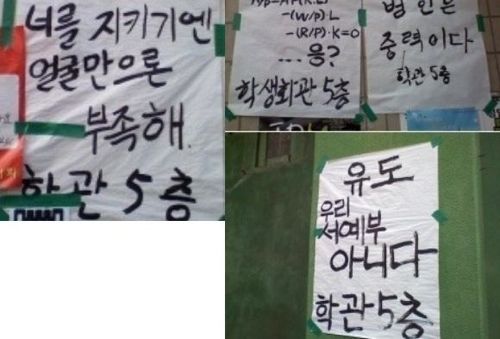 너를 지키기엔
얼굴만으론
부족해
학관 5층
-(W/P)·L
-(R/P)·K=0
...응?
학생회관 5층
범인은
중력이다
학관 5층
유도
우리
서예부
아니다
학관 5층